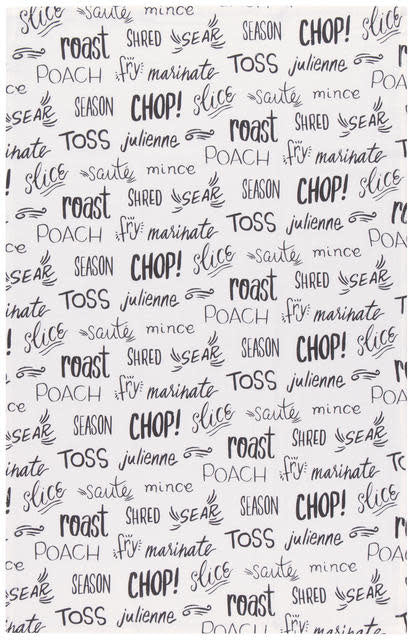 slice saute mince
roast SHRED SEAR SEASON CHOP! slice
POACH fry marinate TOSS julienne roast
ce SEASON CHOP! slice saute mince
SEAR TOSS julienne roast SHRED SEAR
inate slice saute mince POACH fry marinate
! roast SHRED SEAR SEASON CHOP! slice
POACH fry marinate TOSS julienne
ce SEASON CHOP! slice saute mince POA
SEAR TOSS julienne roast SHRED SEAR
inate slice saute mince POACH fry marinate
! roast SHRED SEAR SEASON CHOP! slice
POACH fry marinate TOSS julienne
ce SEASON CHOP! slice saute mince
SEAR TOSS julienne roast SHRED SEAR
inate slice saute mince POACH fry marinate
roast SHRED SEAR SEASON CHOP! slice
POACH fry marinate TOSS julienne
ce SEASON CHOP! slice saute mince POA
SEAR TOSS julienne roast SHRED SEAR
inate POACH fry marinate